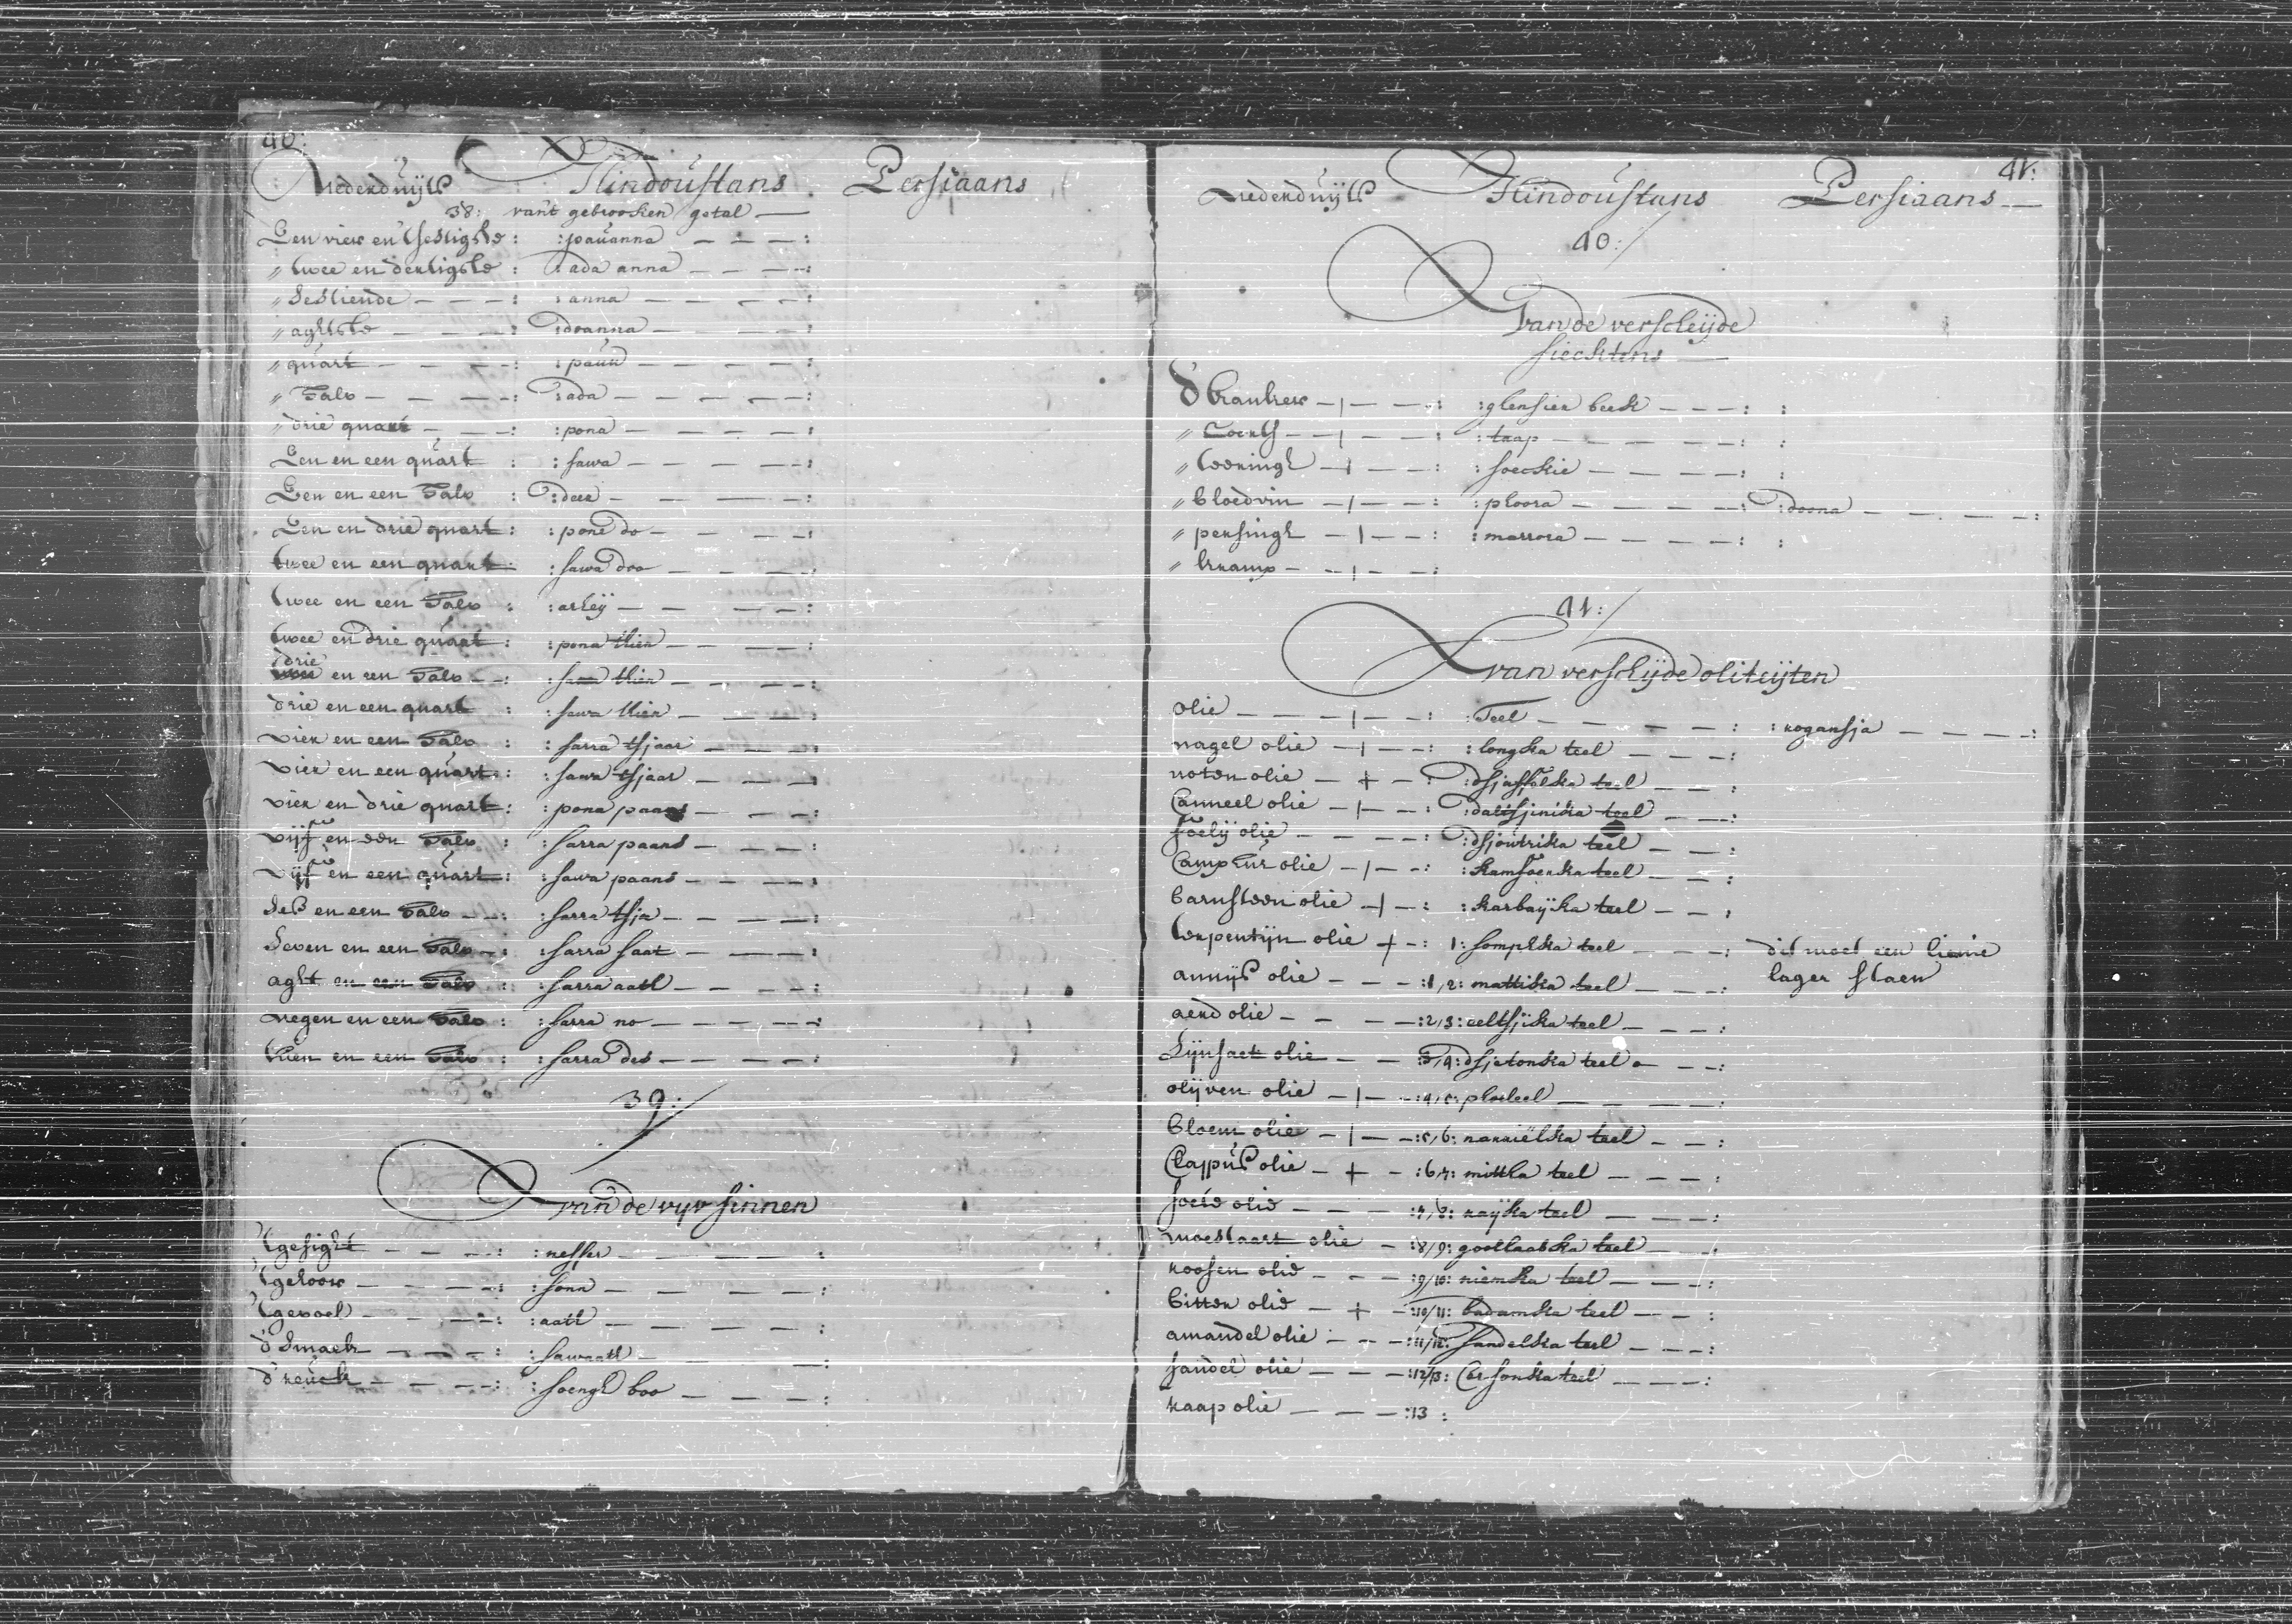 40:
Nederduijts Hindoustans Persiaans
38: van't gebrooken getal
Een vier en tsestigste : : pauanna :
" twee en dertigste : : ada anna :
" Sestiende : : anna :
" aghtste : : doanna :
" quart : : pauw :
" Halv : : ada :
" drie quart : : pona :
Een en een quart : : sawa :
Een en een Halv : : deer :
Een en drie quart : : pone do :
twee en een quart : : sawa doo :
twee en een Halv : : arheij :
twee en drie quart : : pona thien :
drie en een Halv : : sarra thien :
drie en een quart : : sawa thien :
vier en een Halv : : sarra tsjaar :
vier en een quart : : sawa tsjaar :
vier en drie quart : : pona paans :
vijf en een Halv : : sarra paans :
vijf en een quart : : sawa paans :
Ses en een Halv : : sarra tsja :
Seven en een Halv : : sarra saat :
aght en een Halv : : sarra aatt :
negen en een Halv : : sarra no :
thien en een Halv : : sarra des :
39:
van de vijv sinnen
'tgesight : :
'tgehoor : : sona :
'tgevoel : : aatt :
d'Smaek : : sawaatt :
d'reuck : : soengh boo :
41:
Nederduijts Hindoustans Persiaans
40:
Van de verscheijde
siecktens
d' kanker : : ghensier beek : :
" Coorts : : taap : :
" teeringh : : soeckie : :
" bloedvin : : ploora : : doona :
" persingh : : marrora : :
" kramp :
41:
van verscheijde oliteijten
olie : : Teel : : rogansja :
nagel olie : : longka teel :
noten olie : : dsjaffolka teel :
Canneel olie : : daltsjinika teel :
foelij olie : : dsjowtrika teel :
Campher olie : : kamfoerka teel :
barnsteen olie : : karbaijka teel :
terpentijn olie : 1: sompska teel : dit moet een linie
annijs olie : 1/2: mattika teel : lager staen
aerd olie : 2/3: eeltsjika teel :
Lijnsaet olie 3/4: dsjetonka teel :
olijven olie : 4/5: ploeteel :
bloem olie : 5/6: narrielka teel :
Clappus olie : 6/7: mittka teel :
soete olie : 7/8: raijka teel :
mostaart olie : 8/9: goollaabka teel :
roosen olie : 9/10: niemka teel :
bitter olie : 10/11: badamka teel :
amandel olie : 11/12: sandelka teel :
sandel olie : 12/13: Carsonka teel :
raap olie : 13 :